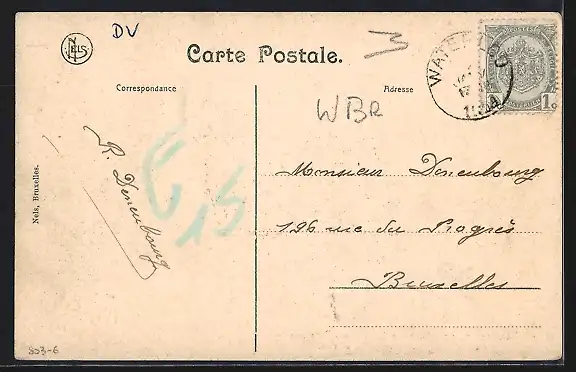 NELS
DV
Carte Postale.
Correspondance
Adresse
WATERLOO
1
WBR
Monsieur Denenbourg
126 rue du Progrès
Bruxelles
R. Denenbourg
Nels, Bruxelles.
G 15
803-6